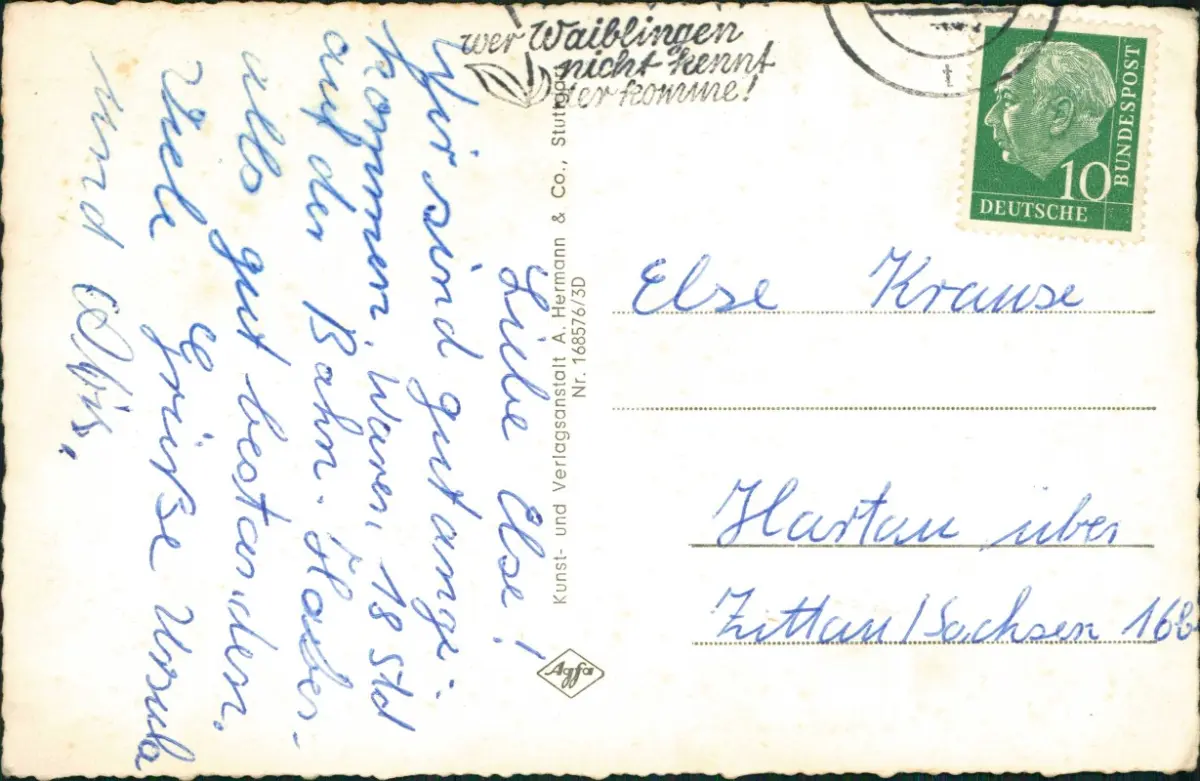 wer Waiblingen
nicht kennt
der komme!
t
10
DEUTSCHE
BUNDESPOST
Liebe Else!
Wir sind gut ange-
kommen, waren 18 Std
auf der Bahn. Haben
alls gut bestanden.
Viele Grüße Ursula
und
Kunst- und Verlagsanstalt A. Hermann & Co., Stuttgart
Nr. 168576/3D
Agfa
Else Krause
Hartau über
Zittau/Sachsen 16b